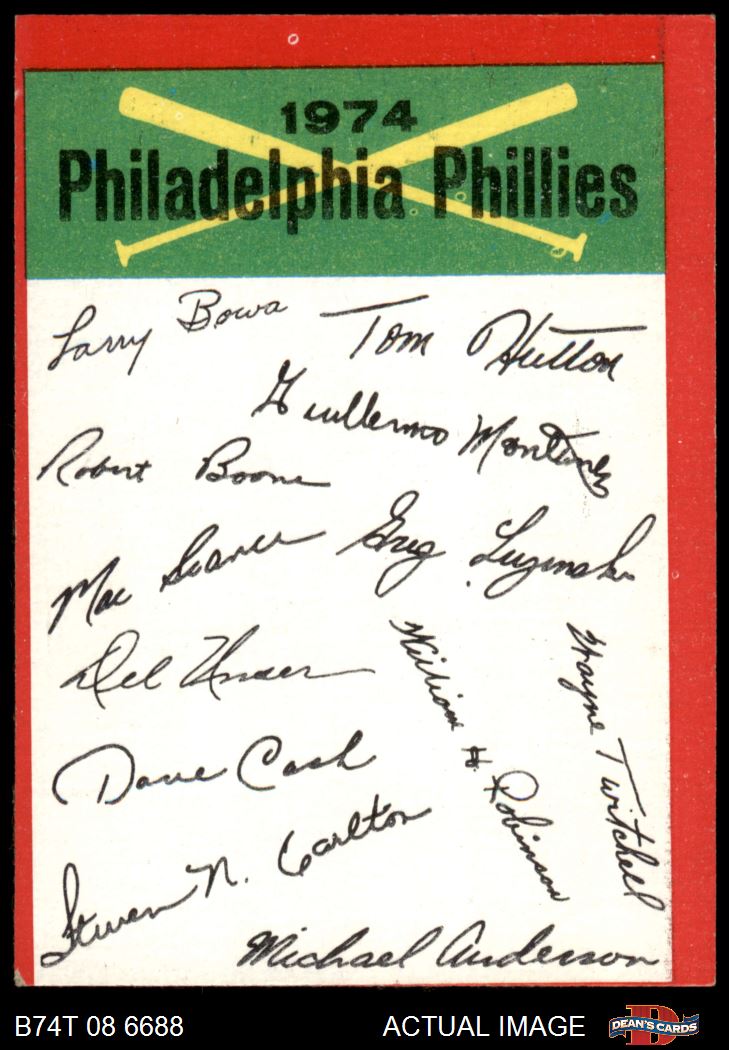 1974
Philadelphia Phillies
Larry Bowa
Tom Hutton
Guillermo Montanez
Robert Boone
Mac Scarce
Greg Luzinski
Del Unser
William H. Robinson
Wayne Twitchell
Dave Cash
Steven N. Carlton
Michael Anderson
B74T 08 6688
ACTUAL IMAGE
DEAN'S CARDS